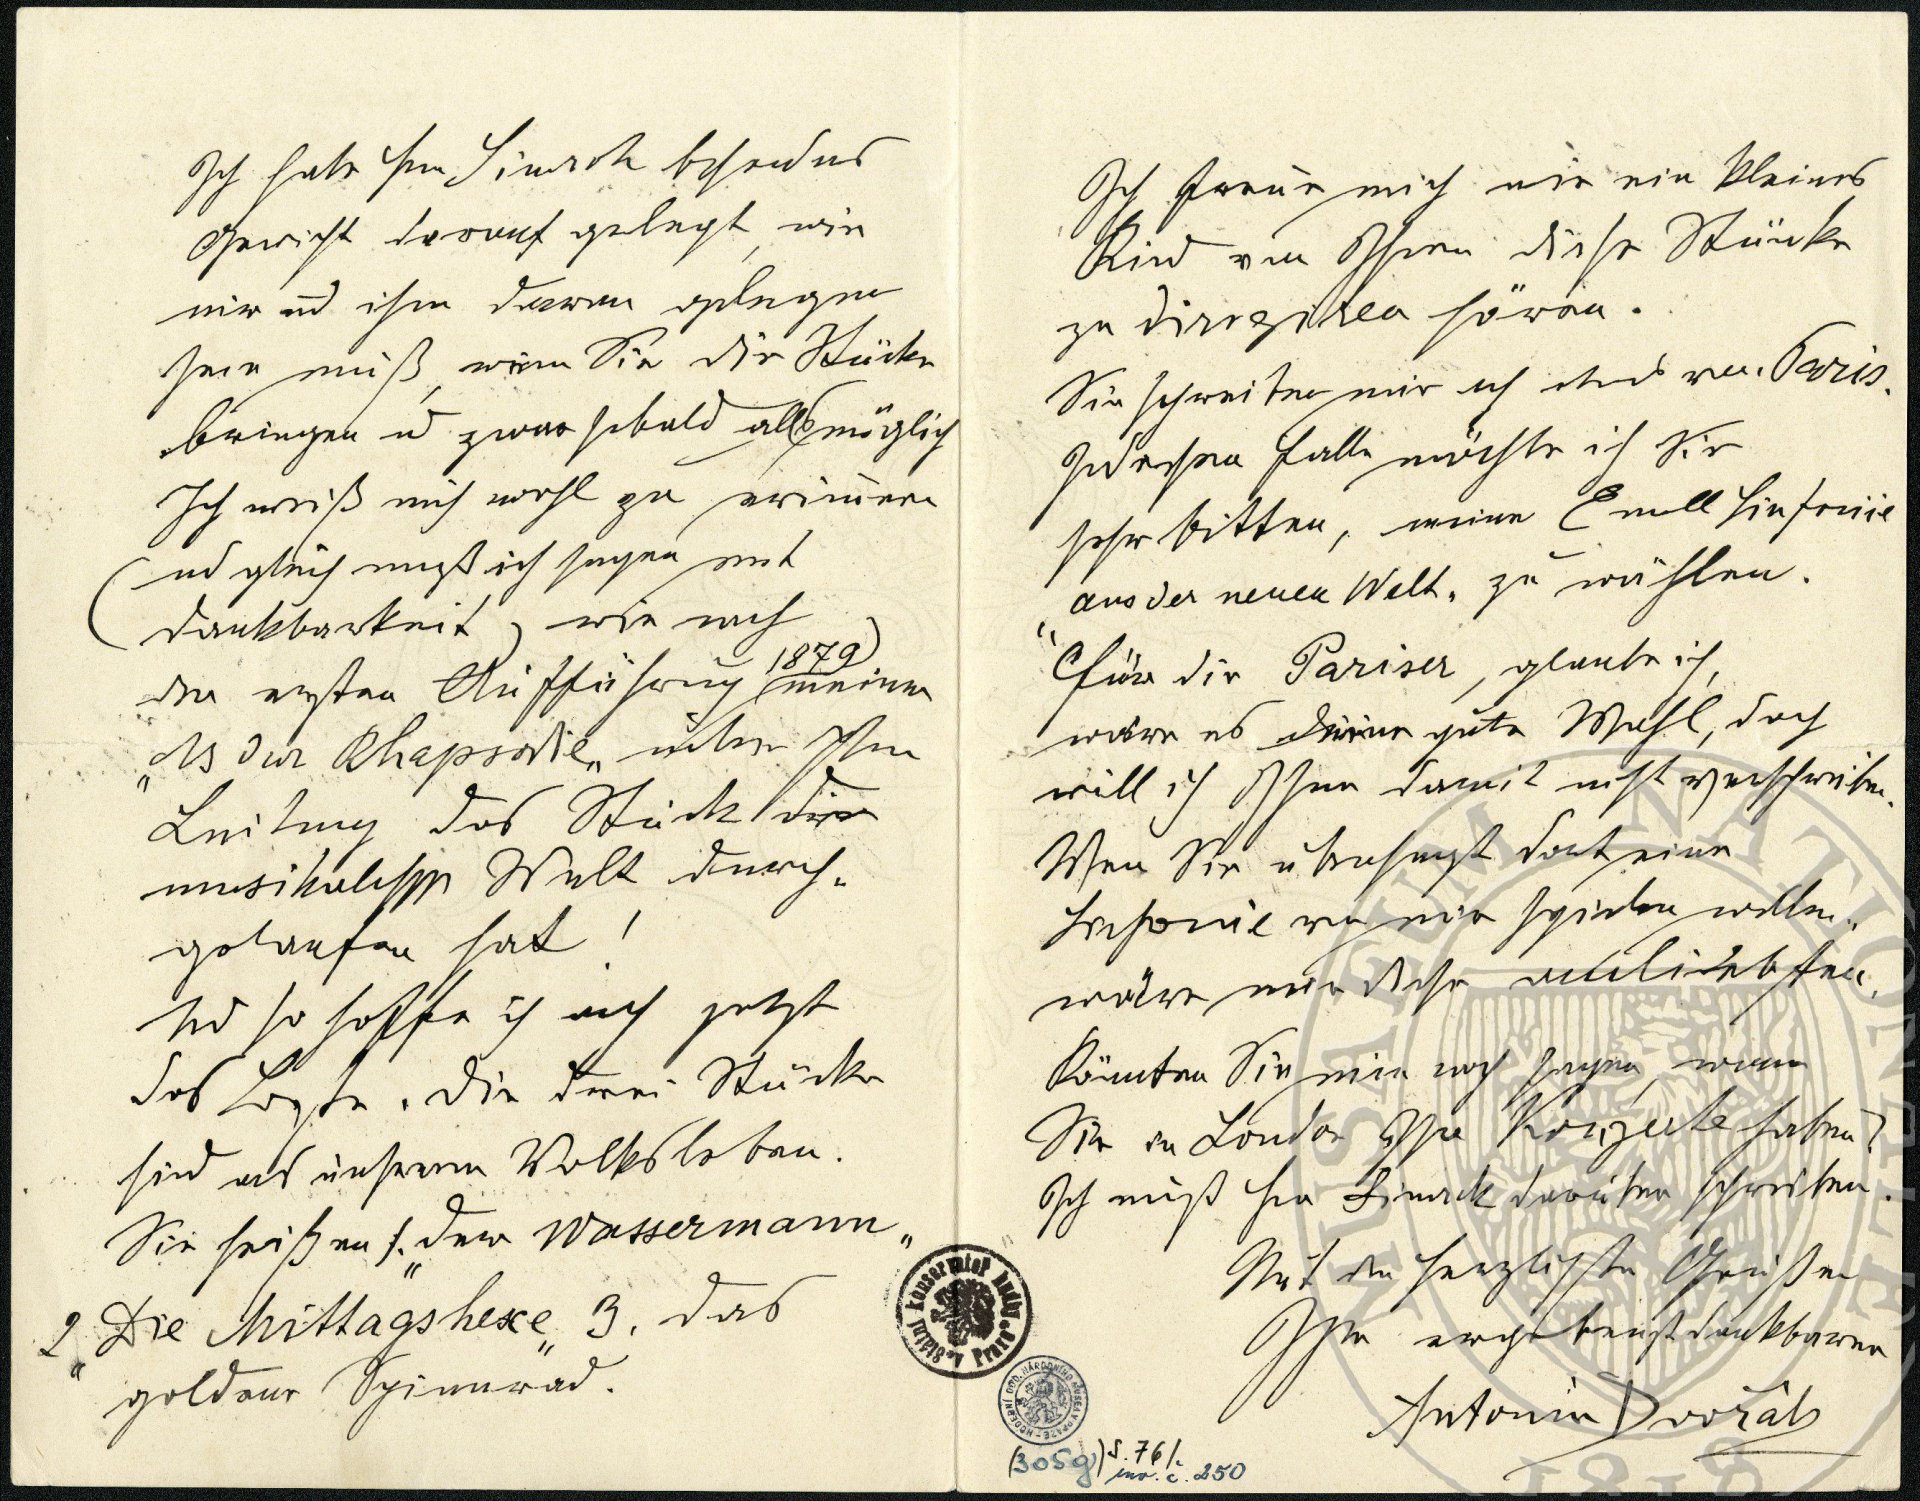 Ich habe Hrn Simrok besonders
Gewicht darauf gelegt, wie
mir ud ihm daran gelegen
sein muß, wenn Sie die Stücke
bringen ud zwar sobald als möglich
Ich weiß mich wohl zu erinnern
(ud gleich muß ich sagen mit
Dankbarkeit) wie nach
der ersten Aufführung (1879) meiner
„As dur Rhapsodie„ unter Ihre
Leitung das Stück die
musikalische Welt durch-
gelaufen hat!
Ud so hoffe ich auch jetzt
das Beste. Die drei Stücke
sind aus unserem Volksleben.
Sie heißen 1. „der Wassermann„
2 „Die Mittagshexe„ 3. das
goldene Spinnrad.
Ich freue mich wie ein kleines
Kind von Ihnen diese Stücke
zu dirigiren hören.
Sie schreiben mir auch etwas von Paris.
In diesem Falle möchte ich Sie
sehr bitten, meine E moll Sinfonie
„aus der neuen Welt„ zu wählen.
Für die Pariser, glaube ich,
wäre es eine gute Wahl, doch
will ich Ihnen damit nicht vorschreiben.
Wen Sie überhaupt dort eine
Sinfonie von mir spielen wollen,
wäre mir diese am liebsten.
Könnten Sie mir noch sagen, wann
Sie in London Ihre Konzerte haben?
Ich muß Hrn Simrok darüber schreiben.
Mit den herzlichsten Grüßen
Ihr ergebenst dankbarer
Antonín Dvořák
Státní konservatoř hudby v Praze
(3059) S. 76/
inv. č. 250
MUSAEUM NATIONALE
1818